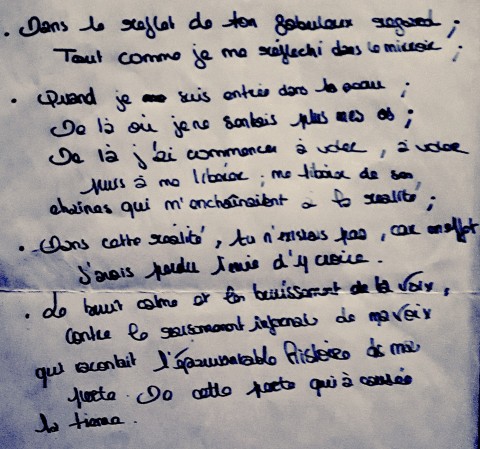 . Dans le reflet de ton fabuleux regard ;
Tout comme je me réfléchi dans le miroir ;
. Quand je suis entrée dans ta peau ;
De là où je ne sentais plus mes os ;
De là j'ai commencer à voler, à voler
puis à me libérer ; me libérer de ses
chaînes qui m'enchaînaient à la réalité ;
. Dans cette réalité, tu n'existais pas, car en effet
J'avais perdu l'envie d'y croire.
. Le bruit calme et le de ta voix,
Contre le raisonnement infernale de ma voix
qui racontait l'épouvantable histoire de ma
perte. De cette perte qui à causée
la tienne.